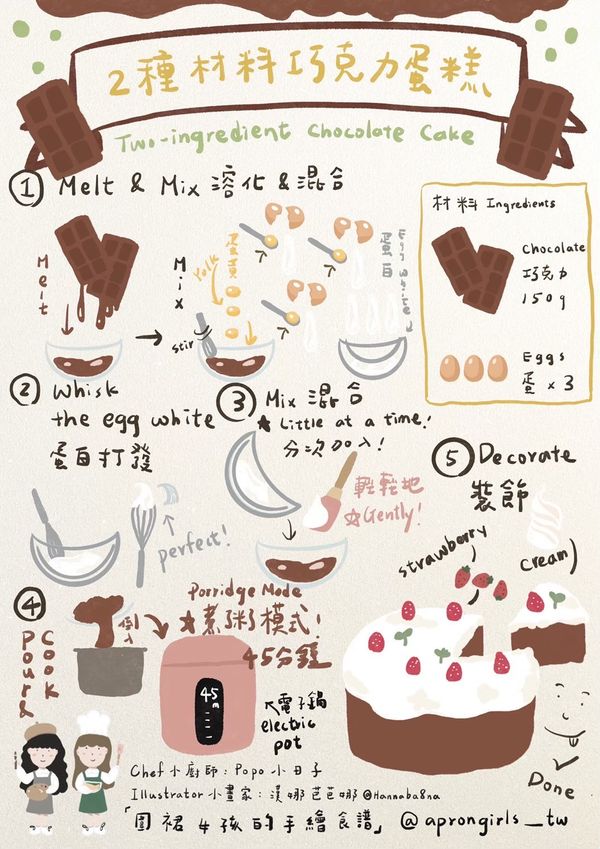 2種材料巧克力蛋糕
Two-ingredient Chocolate Cake
① Melt & Mix 溶化 & 混合
Melt
Mix
stir
Yolk
蛋黃
Egg white
蛋白
材料 Ingredients
Chocolate
巧克力
150g
Eggs
蛋 x 3
② Whisk
the egg white
蛋白打發
perfect!
③ Mix 混合
★ Little at a time!
分次加入!
輕輕地
☆Gently!
④
Pour &
Cook
倒入
Porridge Mode
★煮粥模式!
45分鐘
45
m
電子鍋
electric
pot
⑤ Decorate
裝飾
strawberry
cream
Done
Chef 小廚師：Popo 小日子
Illustrator 小畫家：漢娜芭芭娜 @Hannaba8na
「圍裙女孩的手繪食譜」 @aprongirls_tw